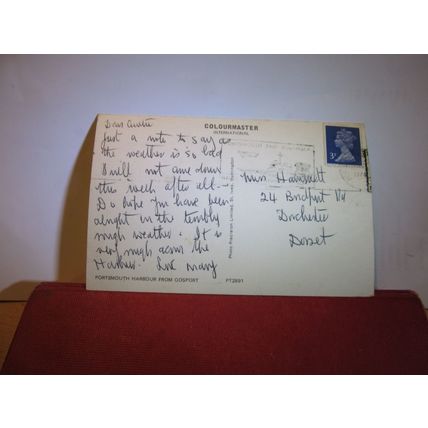 COLOURMASTER
INTERNATIONAL
Dear
Just a note to say as
the weather is so bad
I will not come down
this week after all-
Do hope you have been
alright in the terribly
rough weather. It is
very rough across the
Harbour. Love Mary
PORTSMOUTH HARBOUR FROM GOSPORT PT2891
Photo Precision Limited, St. Ives, Huntingdon
3P
Mrs
24 Bridport Rd
Dorchester
Dorset